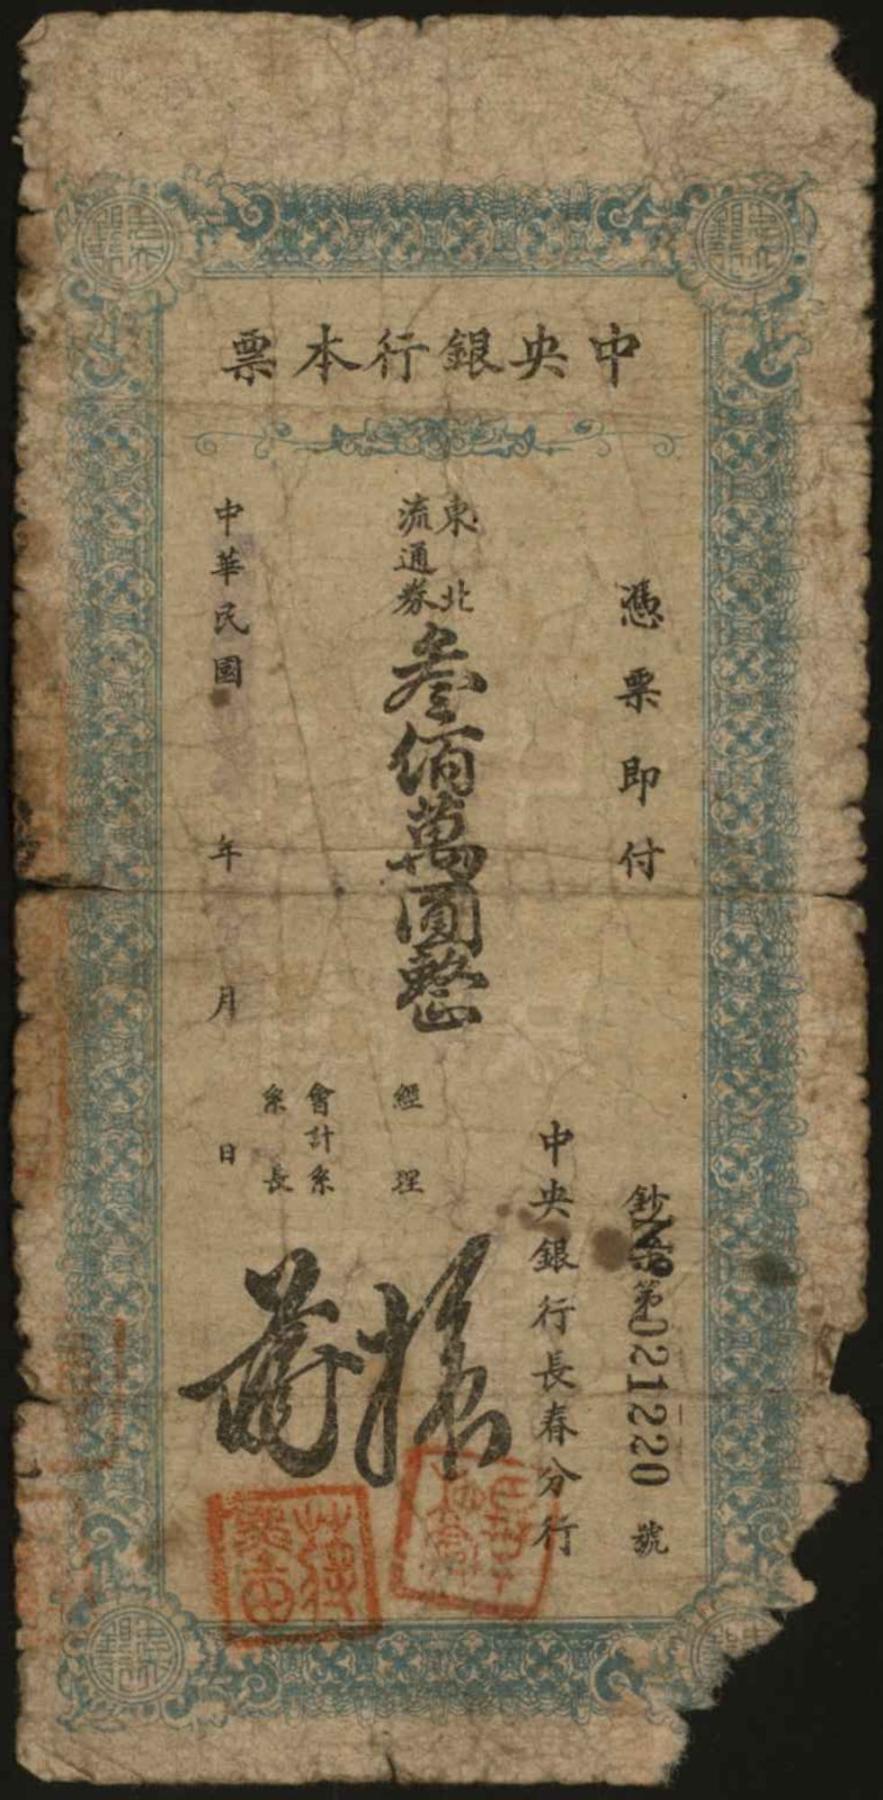 中央銀行本票
憑票即付
鈔
第021220號
中央銀行長春分行
東北
流通券
叁佰萬圓整
經理
會計系
系長
中華民國 年 月 日